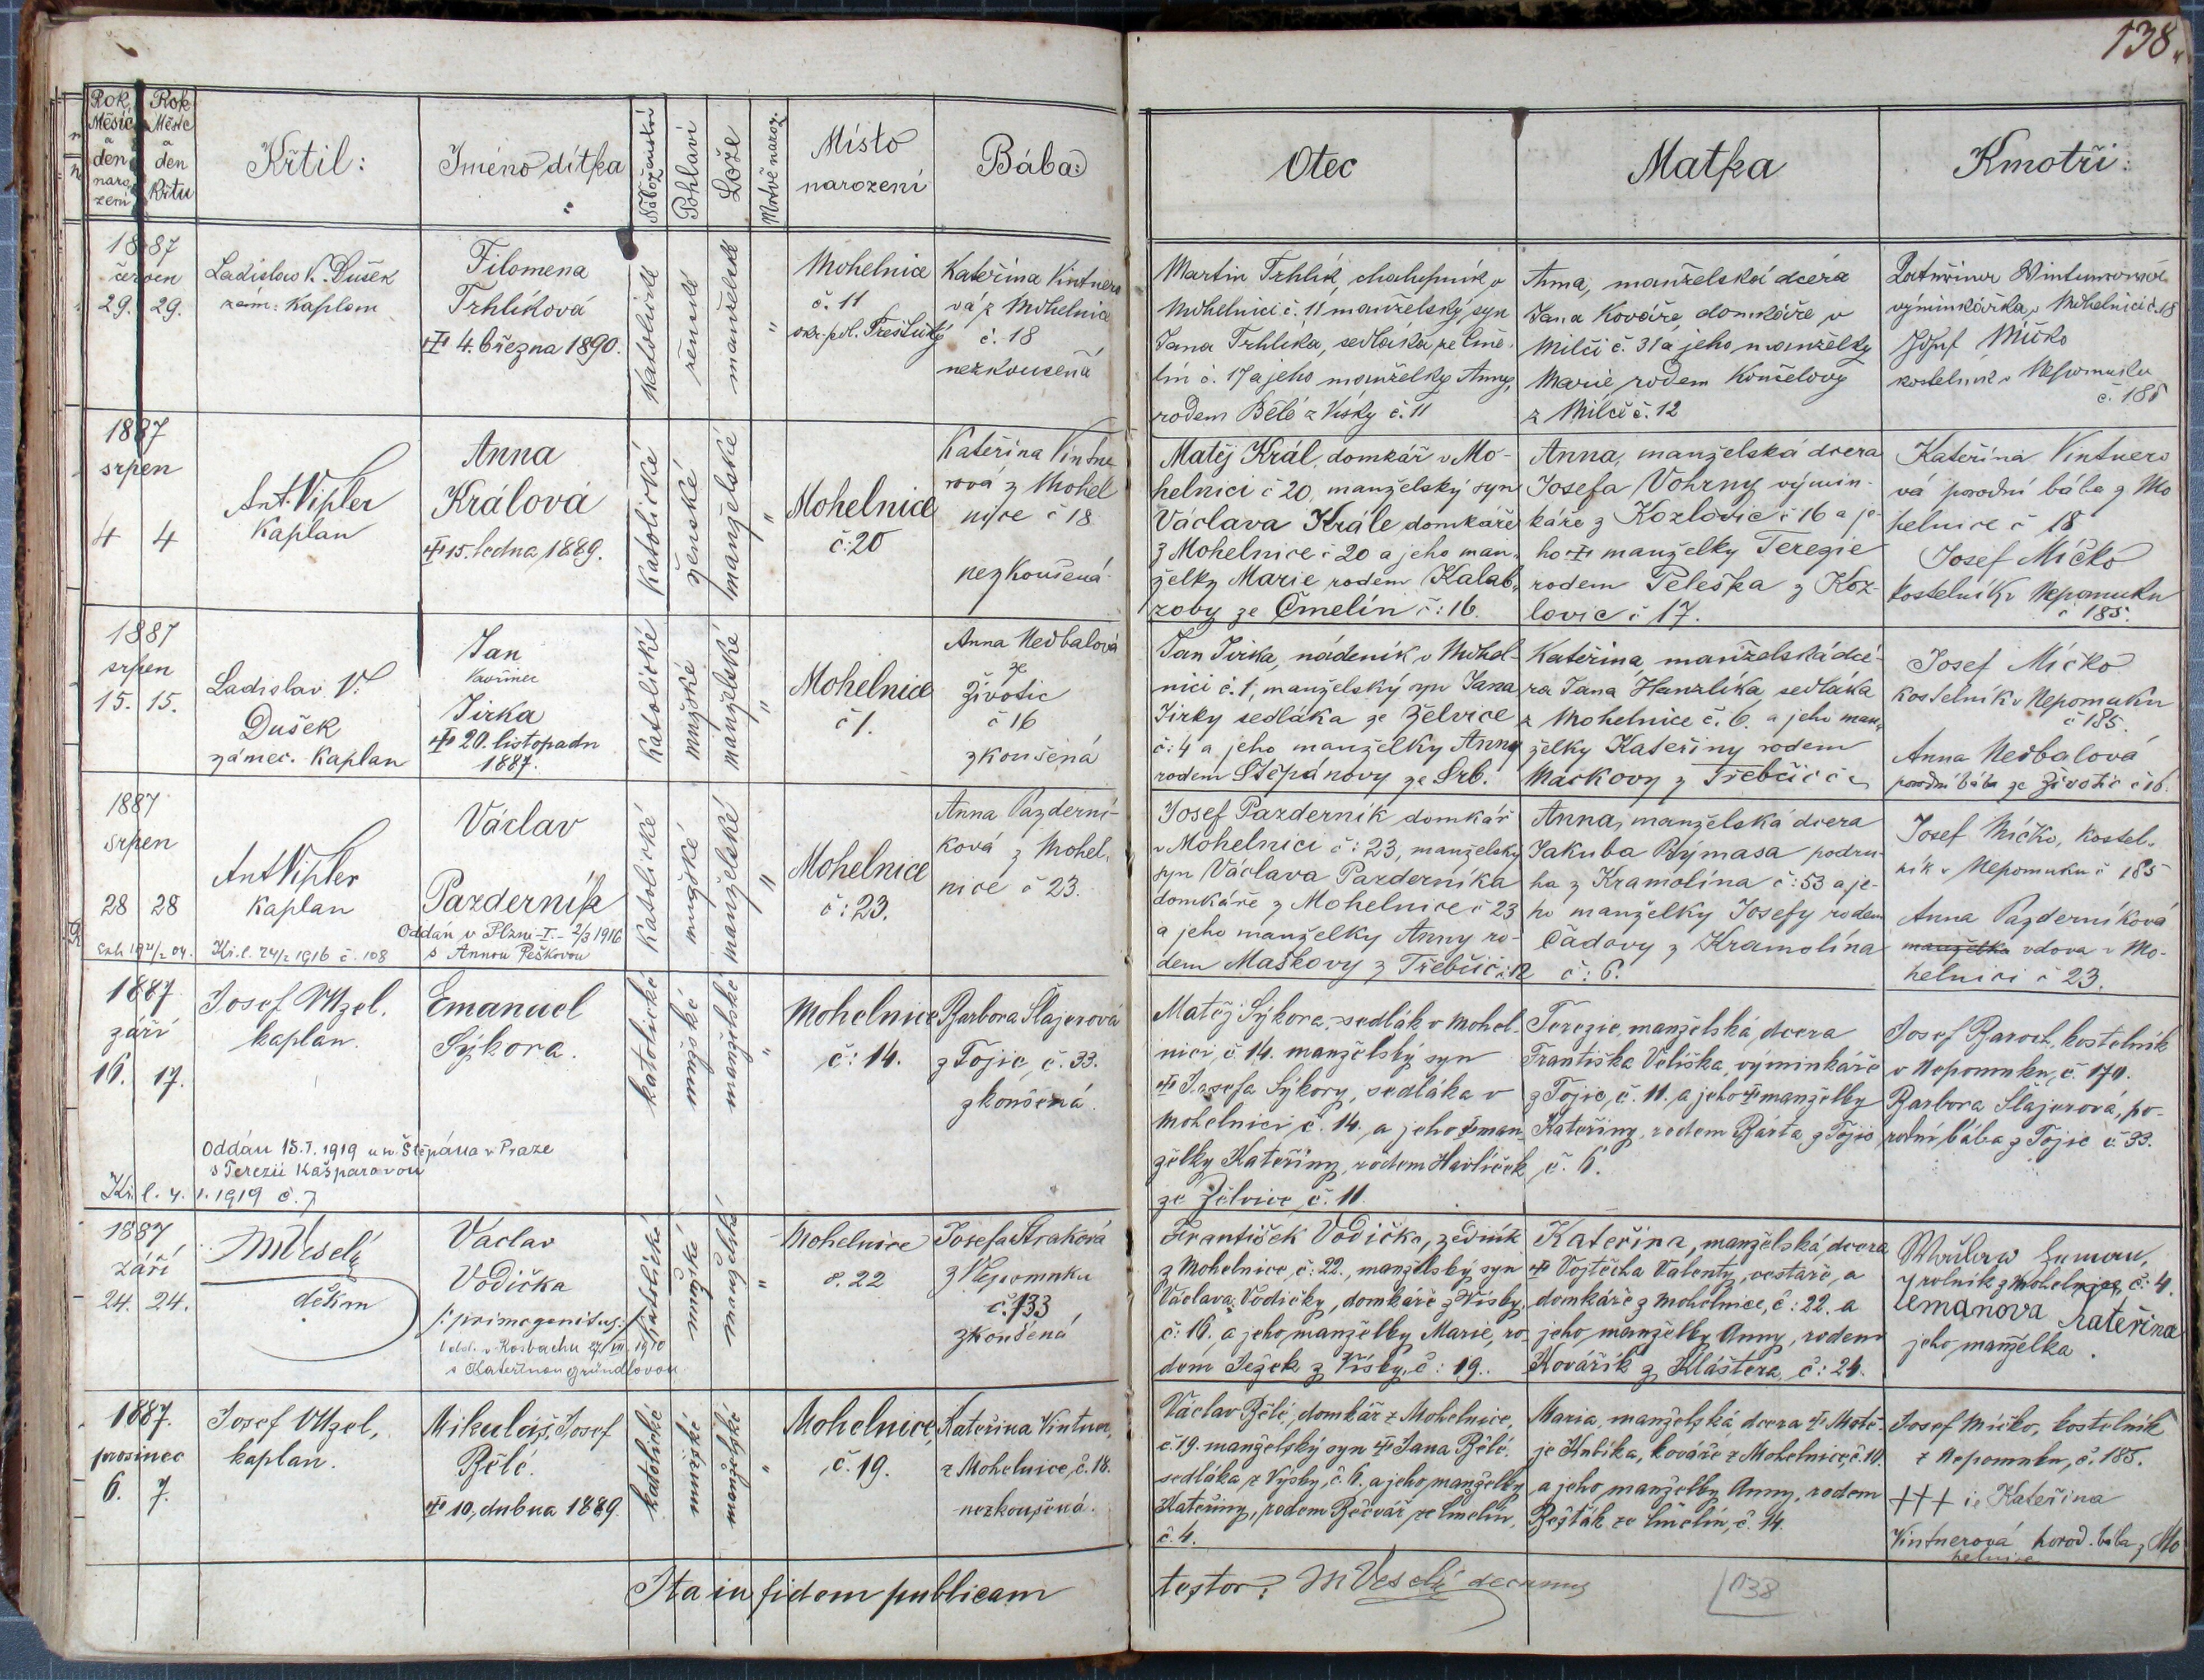 138.
Rok, Měsíc a den naro zení
Rok Měsíc a den Křtu
Křtil:
Jméno dítka
Náboženství
Pohlaví
Lože
Mrtvě naroz.
Místo
narození
Bába:
Otec
Matka
Kmotři:
1887
červen
29. 29.
Ladislav V. Dušek
zám: Kaplan
Filomena
Trhlíková
4. března 1890.
katolické
ženské
manželské
"
Mohelnice
č. 11
Kateřina Vintnero
vá z Mohelnice
č. 18
nezkoušená
Martin Trhlík, chalupník v
Mohelnici č. 11 manželský syn
Jana Trhlíka, sedláka ze Čme-
lín č. 17 a jeho manželky Anny,
rodem Bělé z Vísky č. 11
Anna, manželská dcera
Jana Kováře, domkáře v
Milči č. 31 a jeho manželky
Marie rodem Končelovy
z Milče č. 12
výminkářka v Mohelnici č. 18
Josef Míčko
kostelník v Nepomuku
č. 185
1887
srpen
4 4
Ant. Vipler
Kaplan
Anna
Králová
15. ledna 1889.
Katolické
ženské
manželské
"
Mohelnice
č: 20
Kateřina Vintne
rová z Mohel
nice č 18
nezkoušená
Matěj Král, domkář v Mo-
helnici č 20, manželský syn
Václava Krále domkáře
z Mohelnice č 20 a jeho man-
želky Marie rodem Kalab-
zoby ze Čmelín č: 16.
Anna, manželská dcera
Josefa Vohrny výmin-
káře z Kozlovic č 16 a je-
ho manželky Terezie
rodem Peleška z Koz-
lovic č 17.
Kateřina Vintnero
vá porodní bába z Mo
helnice č 18
Josef Míčko
kostelník v Nepomuku
č 185.
1887
srpen
15. 15.
Ladislav V.
Dušek
zámec. Kaplan
Jan
Vavřinec
Jirka
20. listopadu
1887.
Katolické
mužské
manželské
"
Mohelnice
č 1.
Anna Nedbalová
ze
Životic
č 16
zkoušená
Jan Jirka, nádeník v Mohel-
nici č. 1, manželský syn Jana
Jirky sedláka ze Želvice
č: 4 a jeho manželky Anny
rodem Štěpánovy ze Srb.
Kateřina, manželská dce-
ra Jana Hanzlíka, sedláka
z Mohelnice č. 6. a jeho man-
želky Kateřiny rodem
Maškovy z Třebčic č
Josef Míčko
kostelník v Nepomuku
č 185.
Anna Nedbalová
porodní bába ze Životic č 16.
1887
srpen
28 28
Ant Vipler
Kaplan
Kř. l. 24/2 1916 č. 108
Václav
Pazderník
Oddán v Plzni - I. - 2/3 1916
s Annou Peškovou
Katolické
mužské
manželské
"
Mohelnice
č: 23.
Anna Pazderní-
ková z Mohel-
nice č 23.
Josef Pazderník domkář
v Mohelnici č: 23, manželský
syn Václava Pazderníka
domkáře z Mohelnice č 23
a jeho manželky Anny ro-
dem Maškovy z Třebčic č: 12
Anna, manželská dcera
Jakuba Rýmasa podru-
ha z Kramolína č: 53 a je-
ho manželky Josefy rodem
Čadovy z Kramolína
č: 6.
Josef Míčko, kostel-
ník v Nepomuku č 185
Anna Pazderníková
manželka vdova v Mo-
helnici č 23.
1887
září
16. 17.
Josef Utzel.
kaplan.
Emanuel
Sýkora.
Oddán 15.I.1919 u sv. Štěpána v Praze
s Terezií Kašparovou
Kř. l. 4. 1. 1919 č. 7
katolické
mužské
manželské
"
Mohelnice
č: 14.
Barbora Šlajerová
z Tojic, č. 33.
zkoušená.
Matěj Sýkora, sedlák v Mohel-
nici, č. 14. manželský syn
Josefa Sýkory, sedláka v
Mohelnici č. 14. a jeho man-
želky Kateřiny, rodem Havlíček
ze Želvice, č. 11.
Terezie, manželská dcera
Františka Velíška, výminkáře
z Tojic, č. 11. a jeho manželky
Kateřiny, rodem Bárta z Tojic,
č. 6.
Josef Baroch, kostelník
v Nepomuku, č. 170.
Barbora Šlajerová, po-
rodní bába z Tojic č. 33.
1887
září
24. 24.
M Veselý
děkan
Václav
Vodička
/: primogenitus :/
s Kateřinou Gründlovou
katolické
mužské
manželské
"
Mohelnice
č. 22
Josefa Straková
z Nepomuku
č. 133
zkoušená
František Vodička, zedník
z Mohelnice, č: 22., manželský syn
Václava Vodičky, domkáře z Vísky,
č: 16. a jeho manželky Marie, ro-
dem Ježek z Vísky, č: 19.
Kateřina, manželská dcera
Vojtěcha Valenty, cestáře, a
domkáře z Mohelnice, č: 22. a
jeho manželky Anny, rodem
Kovářík z Kláštera, č: 24.
rolník z Mohelnice, č: 4.
Zemanova Kateřina
jeho manželka.
1887.
prosinec
6. 7.
Josef Utzel,
kaplan.
Mikuláš, Josef
Bělé.
10. dubna 1889.
katolické
mužské
manželské
"
Mohelnice,
č. 19.
Kateřina Vintner,
z Mohelnice, č. 18.
nezkoušená.
Václav Bělé, domkář z Mohelnice,
č. 19. manželský syn Jana Bělé,
sedláka, z Výsky, č. 6. a jeho manželky
Kateřiny, rodem Bečvář ze Čmelín,
č. 4.
Maria, manželská dcera Matě-
je Kubíka, kováře z Mohelnice, č. 10.
a jeho manželky Anny, rodem
Rešták ze Čmelín, č. 14.
Josef Míčko, kostelník
z Nepomuku, č. 185.
+++ Kateřina
Vintnerová porod. bába z Mo
helnice
Ita in fidem publicam
testor: M Veselý decanus
138